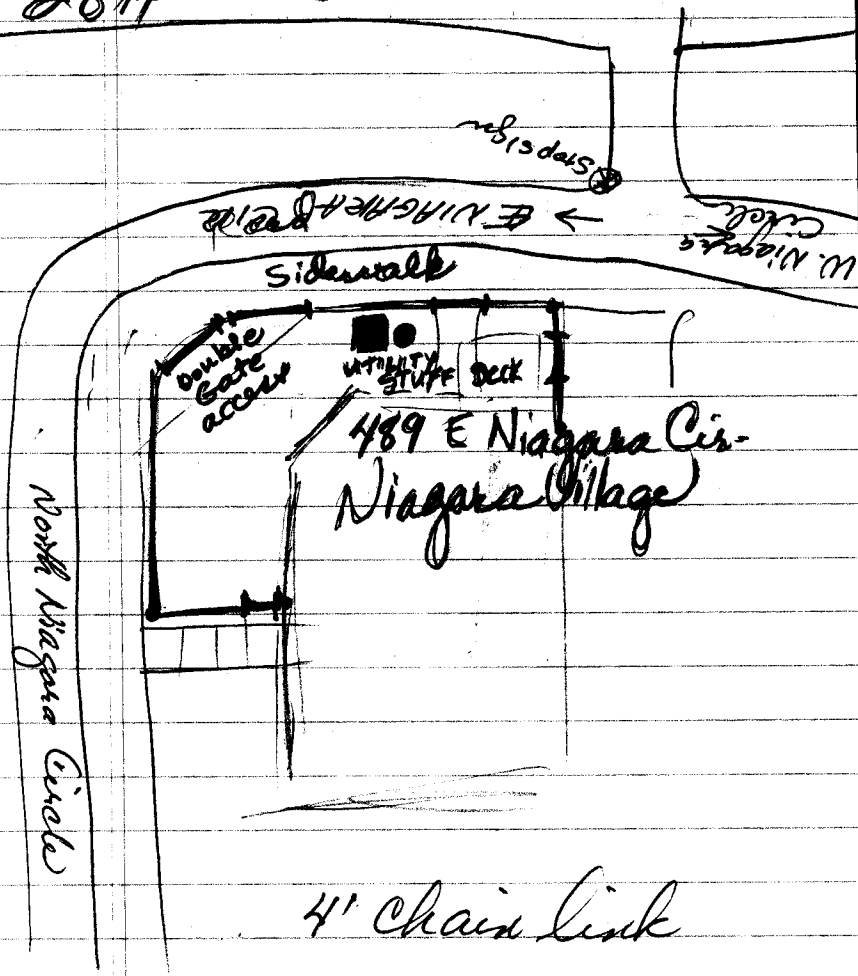 Stop sign
← E NIAGARA
W. Niagara
Circle
Sidewalk
Double
Gate
access
UTILITY
STUFF
Deck
489 E Niagara Cir.
Niagara Village
North Niagara Circle
4' chain link